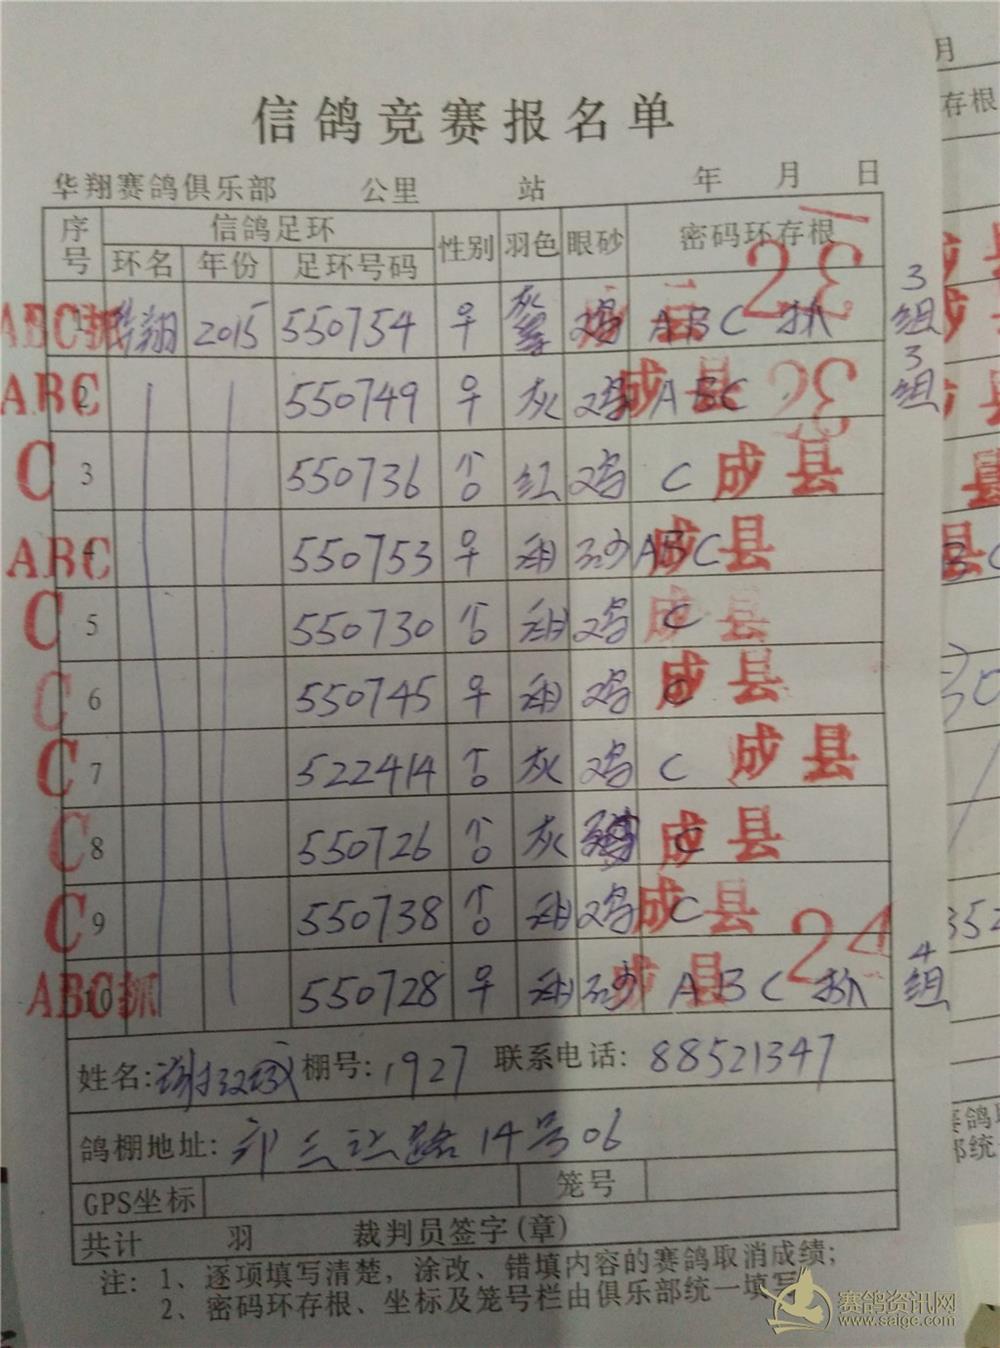 信鸽竞赛报名单
华翔赛鸽俱乐部 公里 站 年 月 日
序号 信鸽足环 性别 羽色 眼砂 密码环存根
环名 年份 足环号码
ABC抓 1 华翔 2015 550754 ♀ 灰 鸡 ABC 抓 23 3组
ABC 2 550749 ♀ 灰 鸡 ABC 成县 23 3组
C 3 550736 ♂ 红 鸡 C 成县
ABC 4 550753 ♀ 雨 砂 ABC 成县
C 5 550730 ♂ 雨 鸡 C 成县
C 6 550745 ♀ 雨 鸡 C 成县
C 7 522414 ♂ 灰 鸡 C 成县
C 8 550726 ♂ 灰 C 成县
C 9 550738 ♂ 雨 鸡 C 成县
ABC抓 10 550728 ♀ 雨 砂 成县 ABC 抓 24 4组
姓名: 棚号: 1927 联系电话: 88521347
鸽棚地址: 路14号06
GPS坐标 笼号
共计 羽 裁判员签字(章)
注: 1、逐项填写清楚，涂改、错填内容的赛鸽取消成绩;
2、密码环存根、坐标及笼号栏由俱乐部统一填写
赛鸽资讯网
www.saige.com
月
存根